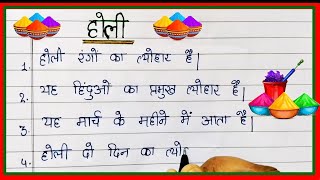 होली
1. होली रंगो का त्योहार है।
2. यह हिंदुओ का प्रमुख त्योहार है।
3. यह मार्च के महीने में आता है।
4. होली दो दिन का त्यो